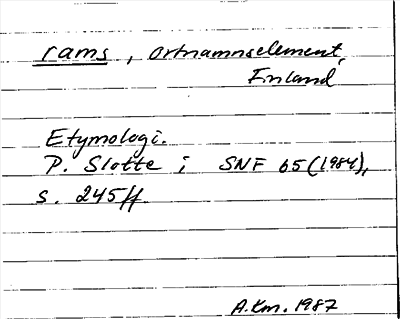 rams, Ortnamnselement,
Finland
Etymologi.
P. Slotte i SNF 65 (1984),
s. 245ff.
A.Km. 1987